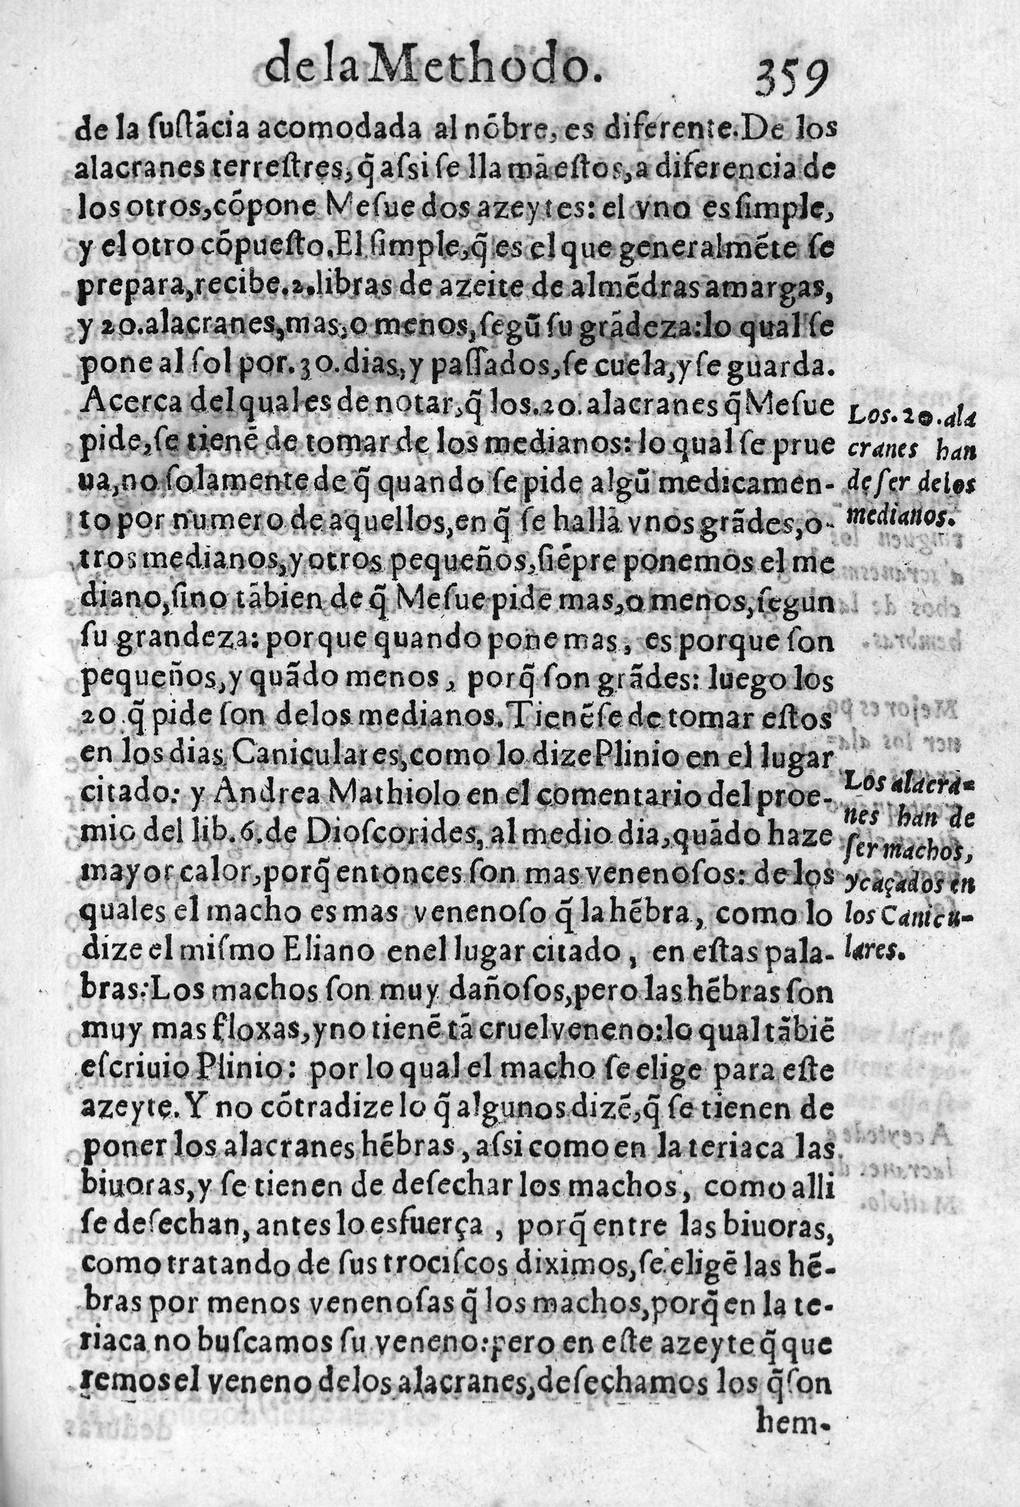 de la Methodo. 359
de la ſuſtācia acomodada al nōbre, es diferente. De los
alacranes terreſtres, q̃ aſsi ſe llamā eſtos, a diferencia de
los otros, cōpone Meſue dos azeytes: el vno es ſimple,
y el otro cōpueſto. El ſimple, q̃ es el que generalmēte ſe
prepara, recibe .2. libras de azeite de almēdras amargas,
y 20. alacranes, mas, o menos, ſegū ſu grādeza: lo qual ſe
pone al ſol por .30. dias, y paſſados, ſe cuela, y ſe guarda.
Acerca del qual es de notar, q̃ los .20. alacranes q̃ Meſue
pide, ſe tienē de tomar de los medianos: lo qual ſe prue
ua, no ſolamente de q̃ quando ſe pide algū medicamen-
to por numero de aquellos, en q̃ ſe hallā vnos grādes, o-
tros medianos, y otros pequeños, ſiēpre ponemos el me
diano, ſino tābien de q̃ Meſue pide mas, o menos, ſegun
ſu grandeza: porque quando pone mas, es porque ſon
pequeños, y quādo menos, porq̃ ſon grādes: luego los
20. q̃ pide ſon delos medianos. Tienēſe de tomar eſtos
en los dias Caniculares, como lo dize Plinio en el lugar
citado: y Andrea Mathiolo en el comentario del proe-
mio del lib. 6. de Dioſcorides, al medio dia, quādo haze
mayor calor, porq̃ entonces ſon mas venenoſos: de los
quales el macho es mas venenoſo q̃ la hēbra, como lo
dize el miſmo Eliano enel lugar citado, en eſtas pala-
bras: Los machos ſon muy dañoſos, pero las hēbras ſon
muy mas floxas, y no tienē tā cruel veneno: lo qual tābiē
eſcriuio Plinio: por lo qual el macho ſe elige para eſte
azeyte. Y no cōtradize lo q̃ algunos dizē, q̃ ſe tienen de
poner los alacranes hēbras, aſsi como en la teriaca las
biuoras, y ſe tienen de deſechar los machos, como alli
ſe deſechan, antes lo esfuerça, porq̃ entre las biuoras,
como tratando de ſus trociſcos diximos, ſe eligē las hē-
bras por menos venenoſas q̃ los machos, porq̃ en la te-
riaca no buſcamos ſu veneno: pero en eſte azeyte q̃ que
remos el veneno delos alacranes, deſechamos los q̃ ſon
hem-
Los .20. ala
cranes han
de ſer delos
medianos.
Los alacra-
nes han de
ſer machos,
y caçados en
los Canicu-
lares.